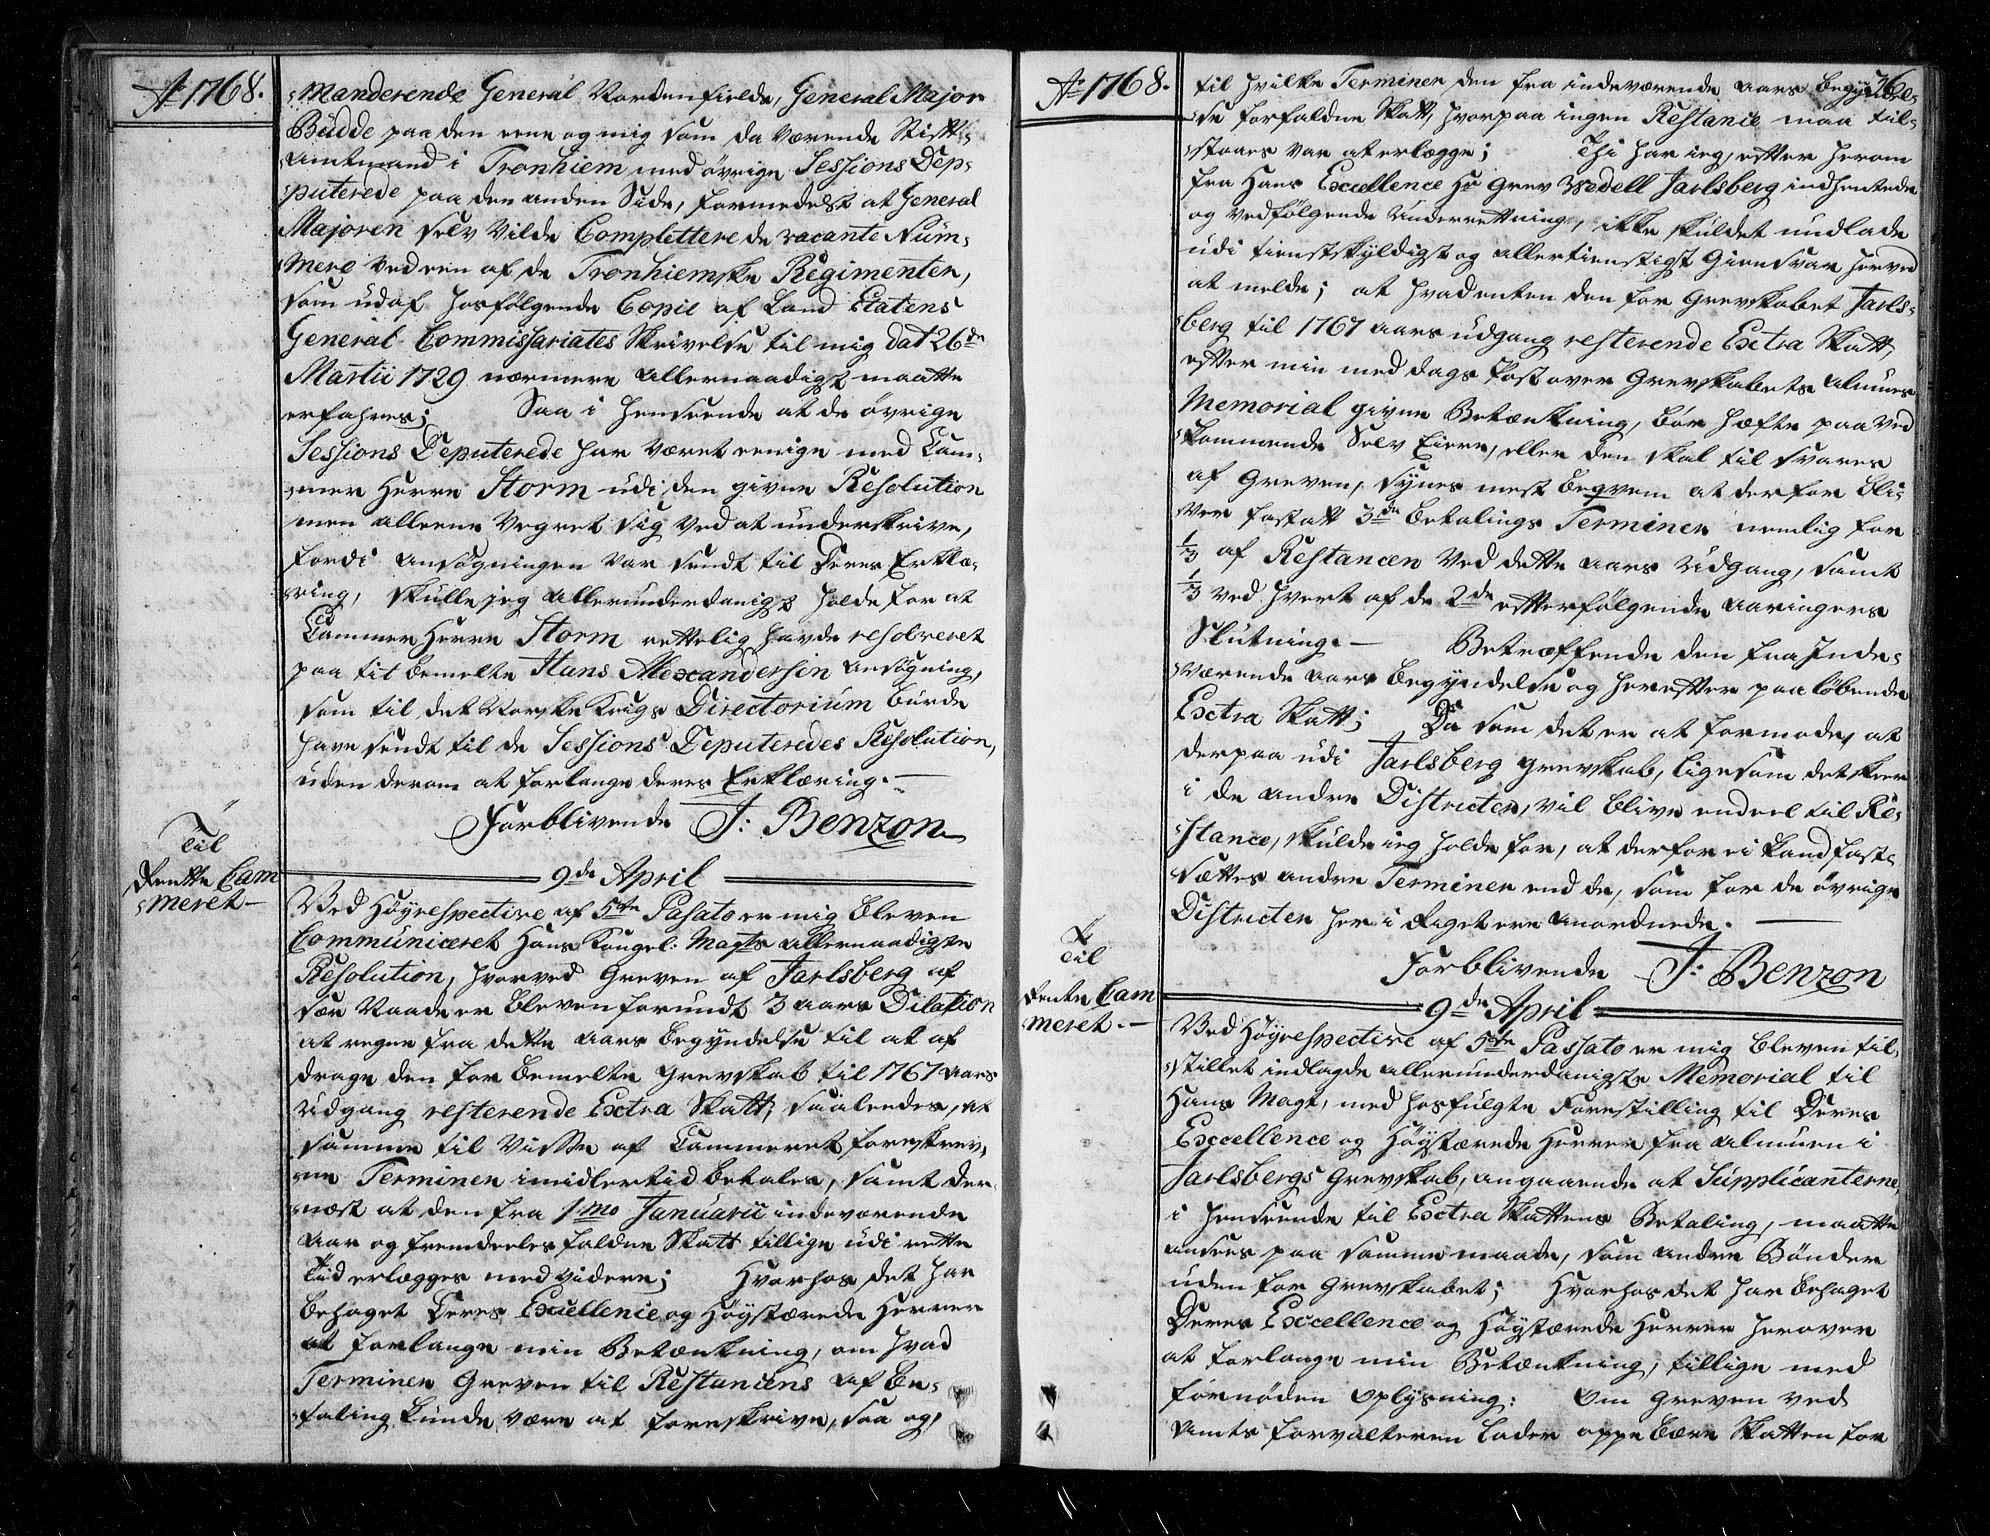 Ao 1768.
:manderende General Nordenfields, General Major
Budde paa den eene og mig som da værende Stift:
:amtmand i Tronhiem med øvrige Sessions Dep:
:puterede paa den anden Side, formedelst at General
Majoren selv vilde Complettere de vacante Num:
:mere ved een af de Tronhiemske Regimenter,
som udaf hosfølgende Copie af Land Etatens
General Commissariates Skrivelse til mig dat 26de
Martii 1729 nærmere allernaadigst maatte
erfahres; Saa i Henseende at de øvrige
Sessions Deputerede har været eenige med Cam:
:mer Herre Storm udi den givne Resolution
men alleene vegret sig ved at underskrive,
fordi Ansøgningen var sendt til Deres Erklæ:
:ring, skulle jeg allerunderdanigst holde for at
Cammer Herre Storm rettelig havde resolveret
paa tit bemelte Hans Alexandersen Ansøgning,
som til det Norske Krigs Directorium burde
have sendt til de Sessions Deputeredes Resolution,
uden derom at forlange deres Erklæring.
Forblivende J: Benzon
Til
Rentte Cam
:meret
9de April
Ved Høyrespective af 5te Pasato er mig bleven
Communiceret Hans Kongel: Mayts allernaadigste
Resolution, hvorved Greven af Jarlsberg af
sær Naade er bleven forundt 3 aars Dilation
at regne fra dette aars begyndelse til at af
drage den for bemelte Grevskab til 1767 aars
udgang resterende Extra Skatt, saaledes, at
samme til visse af Cammeret foreskrev:
:ne Terminer imidlertid betales, samt der:
:næst at den fra 1mo Januarii indeværende
aar og fremdeeles faldne Skatt tillige udi rette
Tiid erlægges med videre; Hvorhos det har
behaget Deres Excellence og Høystærede Herrer
at forlange min Betænkning, om hvad
Terminer Greven til Restancens af be:
:taling kunde være at foreskrive, saa og,
Ao 1768.
36
til hvilke Terminer den fra indeværende aars begyndel:
:se forfaldne Skatt, hvorpaa ingen Restance maa til:
:staaes var at erlægge; Thi har ieg, efter herom
fra Hans Excellence Hr Grev Wedell Jarlsberg indhentede
og vedfølgende Underrettning, ikke skuldet undlade
udi tienstskyldigst og allertienstligst Giensvar herved
at melde; at hvadenten den for Grevskabet Jarls:
:berg til 1767 aars udgang resterende Extra Skatt,
efter min med dags Post over Grevskabets Almues
Memorial givne Betænkning, bør hæfte paa ved
:kommende Selv Eiere, eller den skal til svares
af Greven, synes mest beqvem at derfor bli:
:ver fastsatt 3de betalings Terminer nemlig for
1/3 af Restancen ved dette aars udgang, samt
1/3 ved hvert af de 2de efterfølgende aaringers
Slutning. — Betræffende den fra Inde:
:værende aars begyndelse og herefter paaløbende
Extra Skatt; Da som det er at formode, at
derpaa udi Jarlsberg Grevskab, ligesom det skeer
i de andre Districter, vil blive endeel til Re:
:stance, skulde ieg holde for, at derfor ei kand fast:
:sættes andre Terminer end de, som for de øvrige
Districter her i Riget ere anordnede.
Forblivende J: Benzon
Til
Rente Cam
meret.
9de April
Ved Høyrespective af 5te Passato er mig bleven til:
:stillet indlagde allerunderdanigste Memorial til
Hans Mayt, med hosfulgte Forestilling til Deres
Excellence og Høystærede Herrer fra Almuen i
Jarlsbergs Grevskab, angaaende at Supplicanterne,
i henseende til Extra Skattens Betaling, maatte
ansees paa samme maade, som andre Bønder
uden for Grevskabet; Hvorhos det har behaget
Deres Excellence og Høystærede Herrer herover
at forlange min Betænkning, tillige med
fornøden Oplysning: Om Greven ved
Amtsforvalteren lader oppebære Skatten for